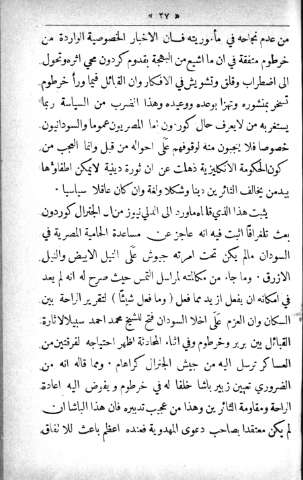 « ٢٧ »
من عدم نجاحه في مأموريته فان الاخبار الخصوصية الواردة من
خرطوم متفقة في ان ما اشيع من البهجة بقدوم كردون محي اثره وتحول
الى اضطراب وقلق وتشويش في الافكار وان القبائل فيما ورأ خرطوم
تسخر بمنشوره وتهزأ بوعده ووعيده وهذا الضرب من السياسة ربما
يستغربه من لا يعرف حال كوردون اما المصريون عموما والسودانيون
خصوصا فلا يعجبون منه لوقوفهم على احواله من قبل وانما العجب من
كون الحكومة الانكليزية ذهلت عن ان ثورة دينية لا يمكن اطفاؤها
بيد من يخالف الثائرين دينا وشكلا ولغة وان كان عاقلا سياسيا
يثبت هذا الذي قلناه ما ورد الى الدلي نيوز من ان الجنرال كوردون
بعث تلغرافا اثبت فيه انه عاجز عن مساعدة الحامية المصرية في
السودان مالم يكن تحت امرته جيوش على النيل الابيض والنيل
الازرق . وما جاء من مكالمته لمراسل التمس حيث صرح له انه لم يعد
في امكانه ان يفعل ازيد مما فعل ( وما فعل شيئا ) لتقرير الراحة بين
السكان وان العزم على اخلا السودان فتح للشيخ محمد احمد سبيلا لاثارة
القبائل بين بربر وخرطوم وفي اثناء المحادثة اظهر احتياجه لفرقتين من
العساكر ترسل اليه من جيش الجنرال كراهام . ومما قاله انه من
الضروري تعيين زبير باشا خلفا له في خرطوم و يفرض اليه اعادة
الراحة ومقاومة الثائرين وهذا من عجيب تدبيره فان هذا الباشا ان
لم يكن معتقدا بصاحب دعوى المهدوية فعنده اعظم باعث للاتفاق